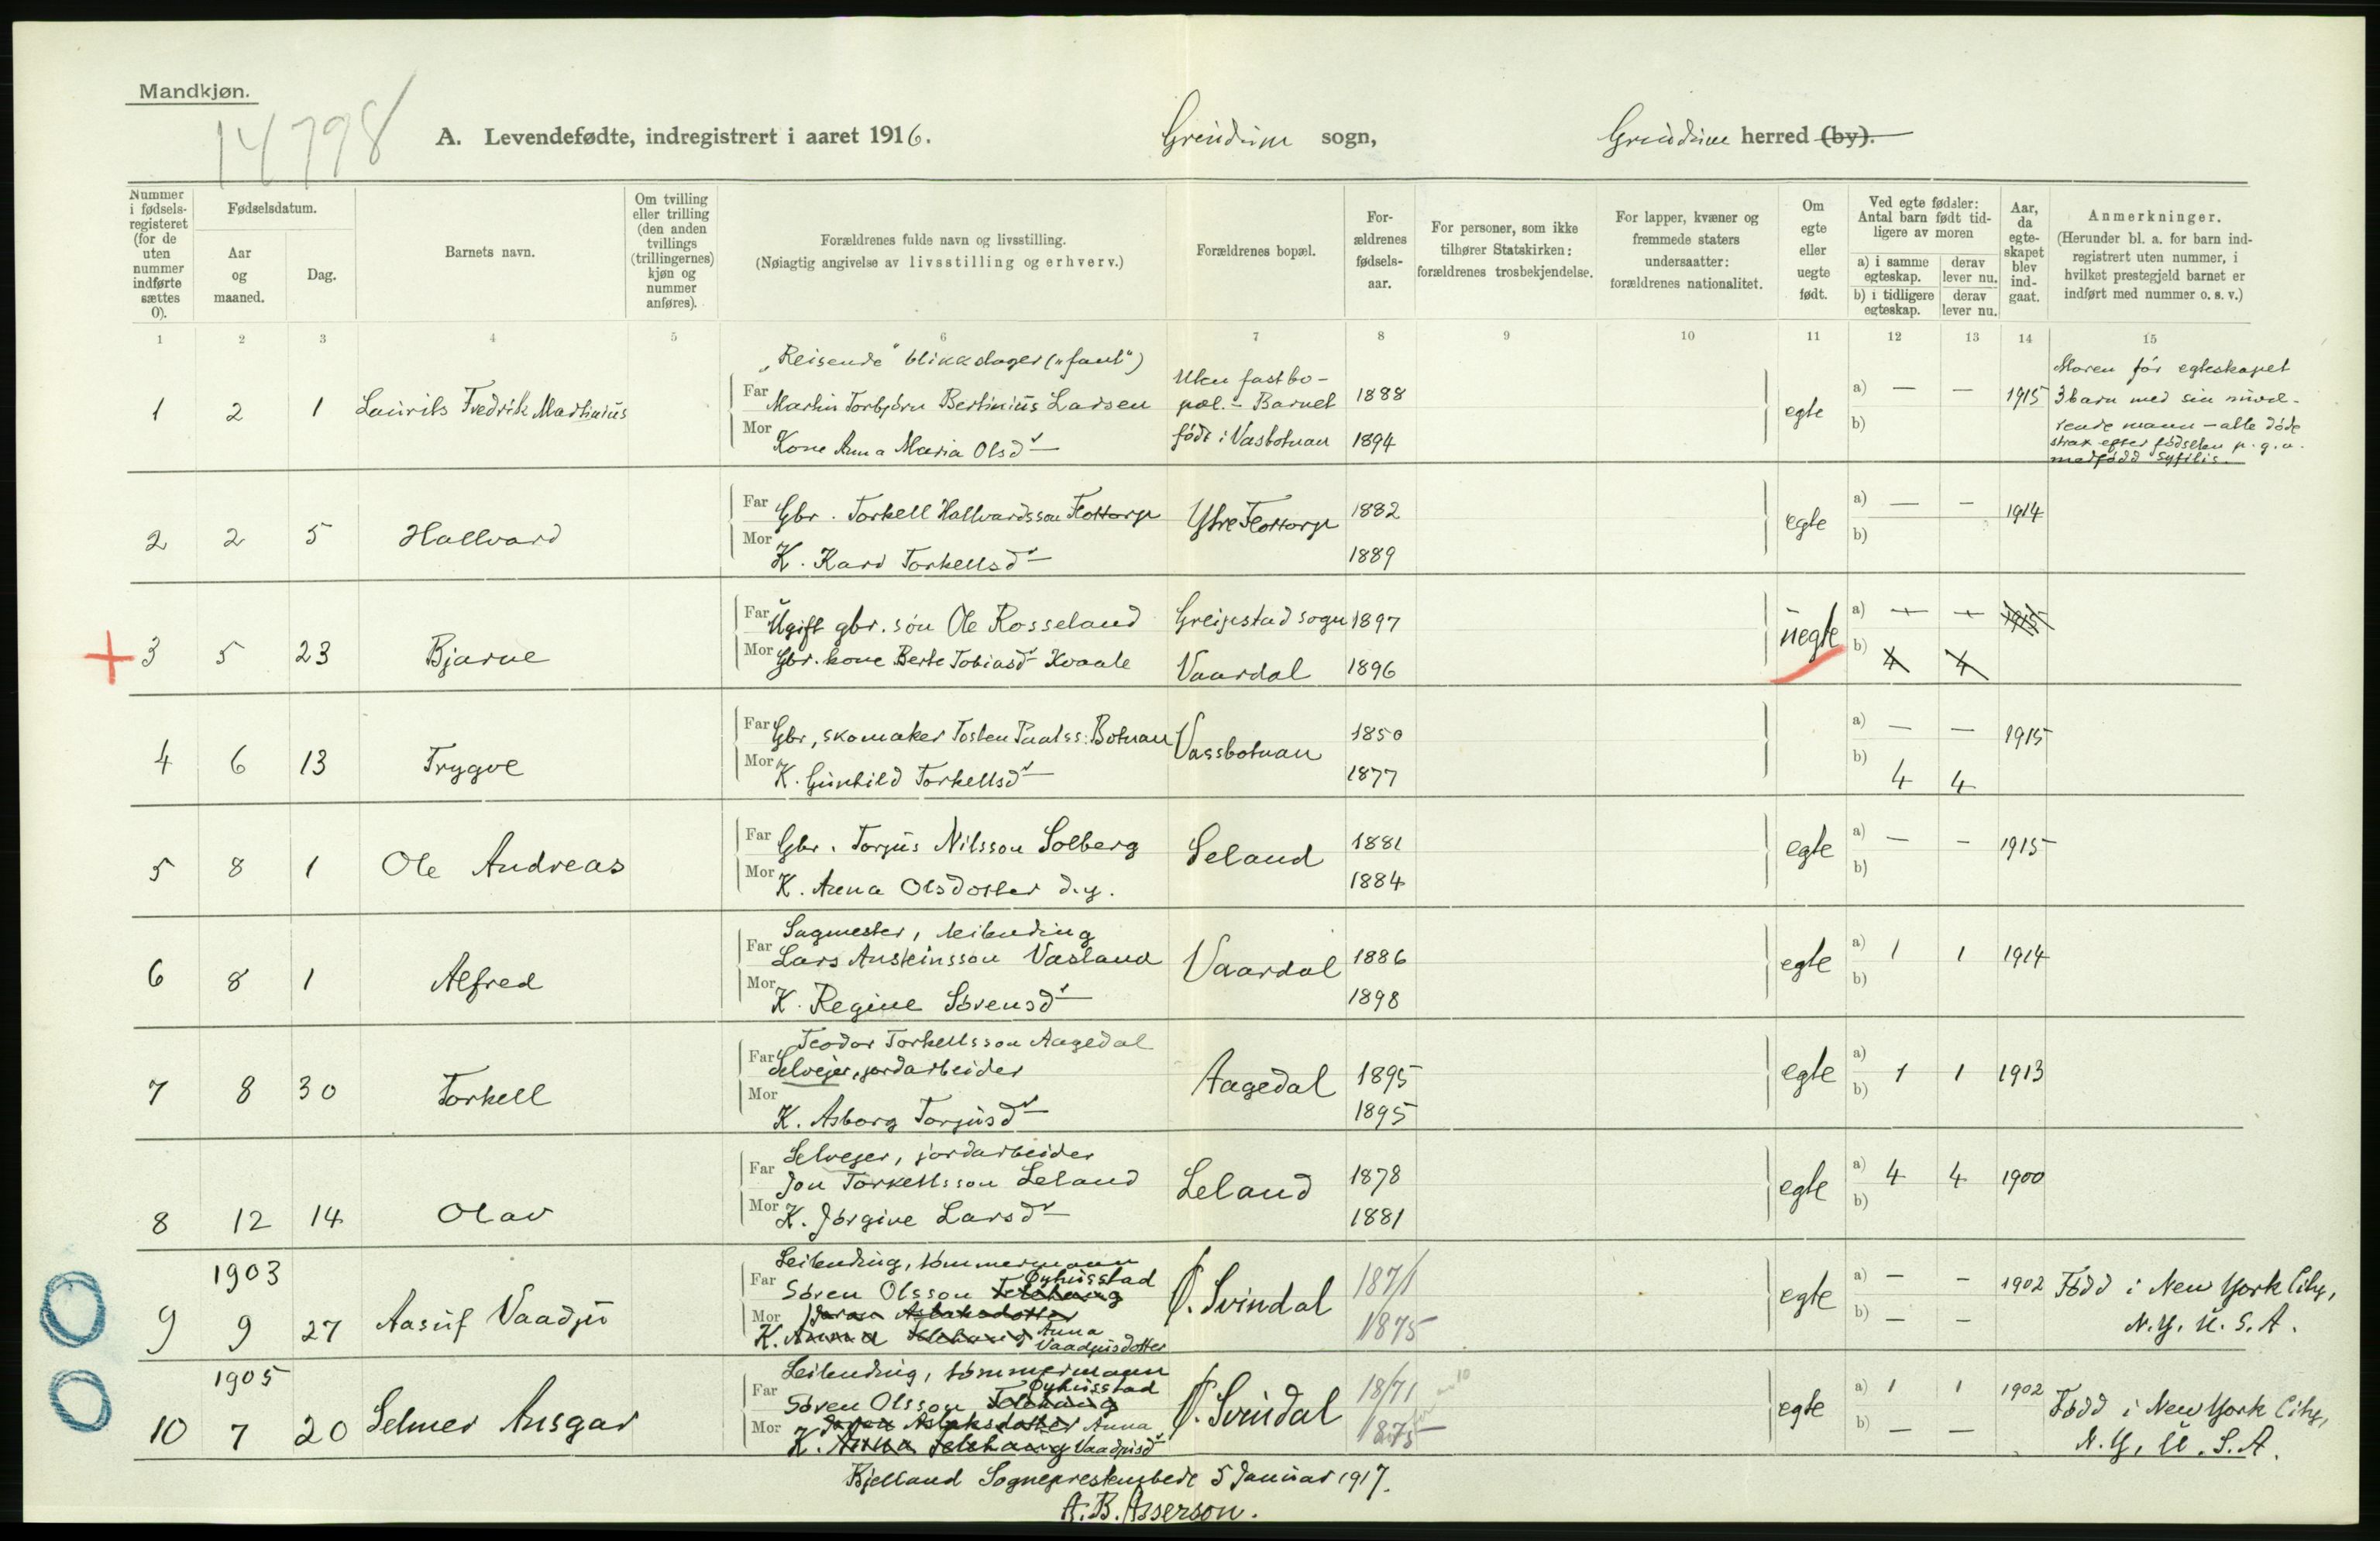 Mandkjøn.
14798
A. Levendefødte, indregistrert i aaret 1916. Grindum sogn, Grindum herred (by).
Nummer i fødselsregisteret (for de uten nummer indførte sættes 0).
Fødselsdatum.
Aar og maaned.
Dag.
Barnets navn.
Om tvilling eller trilling (den anden tvillings (trillingernes) kjøn og nummer anføres).
Forældrenes fulde navn og livsstilling.
(Nøiagtig angivelse av livsstilling og erhverv.)
Forældrenes bopæl.
Forældrenes fødselsaar.
For personer, som ikke tilhører Statskirken: forældrenes trosbekjendelse.
For lapper, kvæner og fremmede staters undersaatter: forældrenes nationalitet.
Om egte eller uegte født.
Ved egte fødsler: Antal barn født tidligere av moren
a) i samme egteskap. derav lever nu.
b) i tidligere egteskap. derav lever nu.
Aar, da egteskapet blev indgaat.
Anmerkninger.
(Herunder bl. a. for barn indregistrert uten nummer, i hvilket prestegjeld barnet er indført med nummer o. s. v.)
1 2 3 4 5 6 7 8 9 10 11 12 13 14 15
1 2 1 Laurits Fredrik Martinius
"Reisende" blikkslager ("fant")
Far Martin Torbjørn Bertinius Larsen
Mor Kone Anna Maria Olsd
Uten fast bo-
pæl. - Barnet
født i Vasbotnan
1888
1894
egte
a) — —
b)
1915
Moren før egteskapet
3 barn med sin nuvæ-
rende mann - alle døde
strax efter fødselen p.g.a.
medfødd syfilis.
2 2 5 Hallvard
Far Gbr. Torkell Hallvardsson Flottorp
Mor K. Kari Torkellsd
Ytre Flottorp
1882
1889
egte
a) — —
b)
1914
3 5 23 Bjarne
Far Ugift gbr. søn Ole Rosseland
Mor Gbr. kone Berte Tobiasd Kvaale
Greipstad sogn
Vaardal
1897
1896
uegte
a) — — 1915
b) 4 4
4 6 13 Trygve
Far Gbr, skomaker Tosten Paalss. Botnan
Mor K. Gunhild Torkellsd
Vassbotnan
1850
1877
a) — —
b) 4 4
1915
5 8 1 Ole Andreas
Far Gbr. Torjus Nilsson Solberg
Mor K. Anna Olsdotter d.y.
Seland
1881
1884
egte
a) — —
b)
1915
6 8 1 Alfred
Sagmester, leilending
Far Lars Austeinsson Vasland
Mor K. Regine Sørensd
Vaardal
1886
1898
egte
a) 1 1
b)
1914
7 8 30 Torkell
Teodor Torkellsson Aagedal
Far Selvejer, jordarbeider
Mor K. Asborg Torjusd
Aagedal
1895
1895
egte
a)
b) 1 1
1913
8 12 14 Olav
Selvejer, jordarbeider
Far Jon Torkellsson Leland
Mor K. Jørgine Larsd
Leland
1878
1881
egte
a) 4 4
b)
1900
1903
9 9 27 Aasulf Vaadju
Leilending, tømmermann
Øyhusstad
Far Søren Olsson Telehaug
Mor Jøran Aslaksdotter
K. Anna Telehaug Anna
Vaadjusdotter
Ø. Svindal
1871
1875
egte
a) — —
b) — —
1902
Født i New York City,
N.Y. U.S.A.
1905
10 7 20 Selmer Ansgar
Leilending, tømmermann
Øyhusstad
Far Søren Olsson Telehaug
Mor Jøran Aslaksdotter Anna
K. Anna Telehaug Vaadjusd
Ø. Svindal
1871
1875
egte
a) 1 1
b) — —
1902
Født i New York City,
N.Y, U.S.A.
Bjelland Sogneprestembede 5 Januar 1917.
A.B. Asserson.